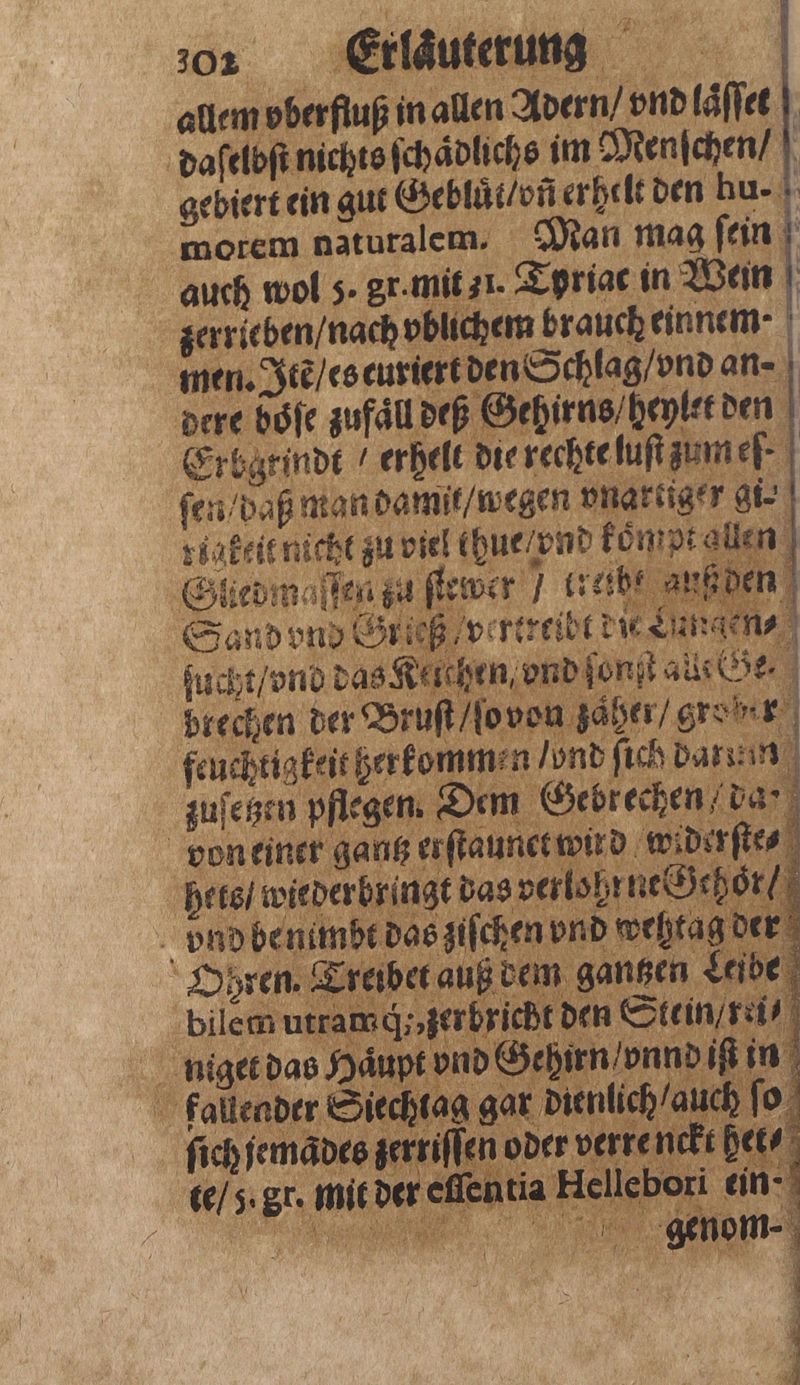 302 Erläuterung
allem vberfluß in allen Adern/ vnd läſſet
daſelbſt nichts ſchädlichs im Menſchen/
gebiert ein gut Geblüt/vñ erhelt den hu-
morem naturalem. Man mag ſein
auch wol 5. gr. mit ʒ1. Tyriac in Wein
zerrieben/nach vblichem brauch einnem-
men. Itē/es curiert den Schlag/vnd an-
dere böſe zufäll deß Gehirns/heylet den
Erbgrindt / erhelt die rechte luſt zum eſ-
ſen/daß man damit/wegen vnartiger gi-
rigkeit nicht zu viel thue/vnd kömpt allen
Gliedmaſſen zu ſtewer / treibt auß den
Sand vnd Grieß/vertreibt die Lungen-
ſucht/vnd das Keichen, vnd ſonſt alle Ge-
brechen der Bruſt/ſo von zäher/ grober
feuchtigkeit herkommen/vnd ſich darinn
zuſetzen pflegen. Dem Gebrechen/da-
von einer gantz erſtaunet wird widerſte-
hets/ wiederbringt das verlohrne Gehör/
vnd benimbt das ziſchen vnd wehtag der
Ohren. Treibet auß dem gantzen Leibe
bilem utramq́;, zerbricht den Stein/rei-
niget das Häupt vnd Gehirn/vnnd iſt in
fallender Siechtag gar dienlich/auch ſo
ſich jemādes zerriſſen oder verrenckt het-
te/ 5. gr. mit der eſſentia Hellebori ein-
genom-